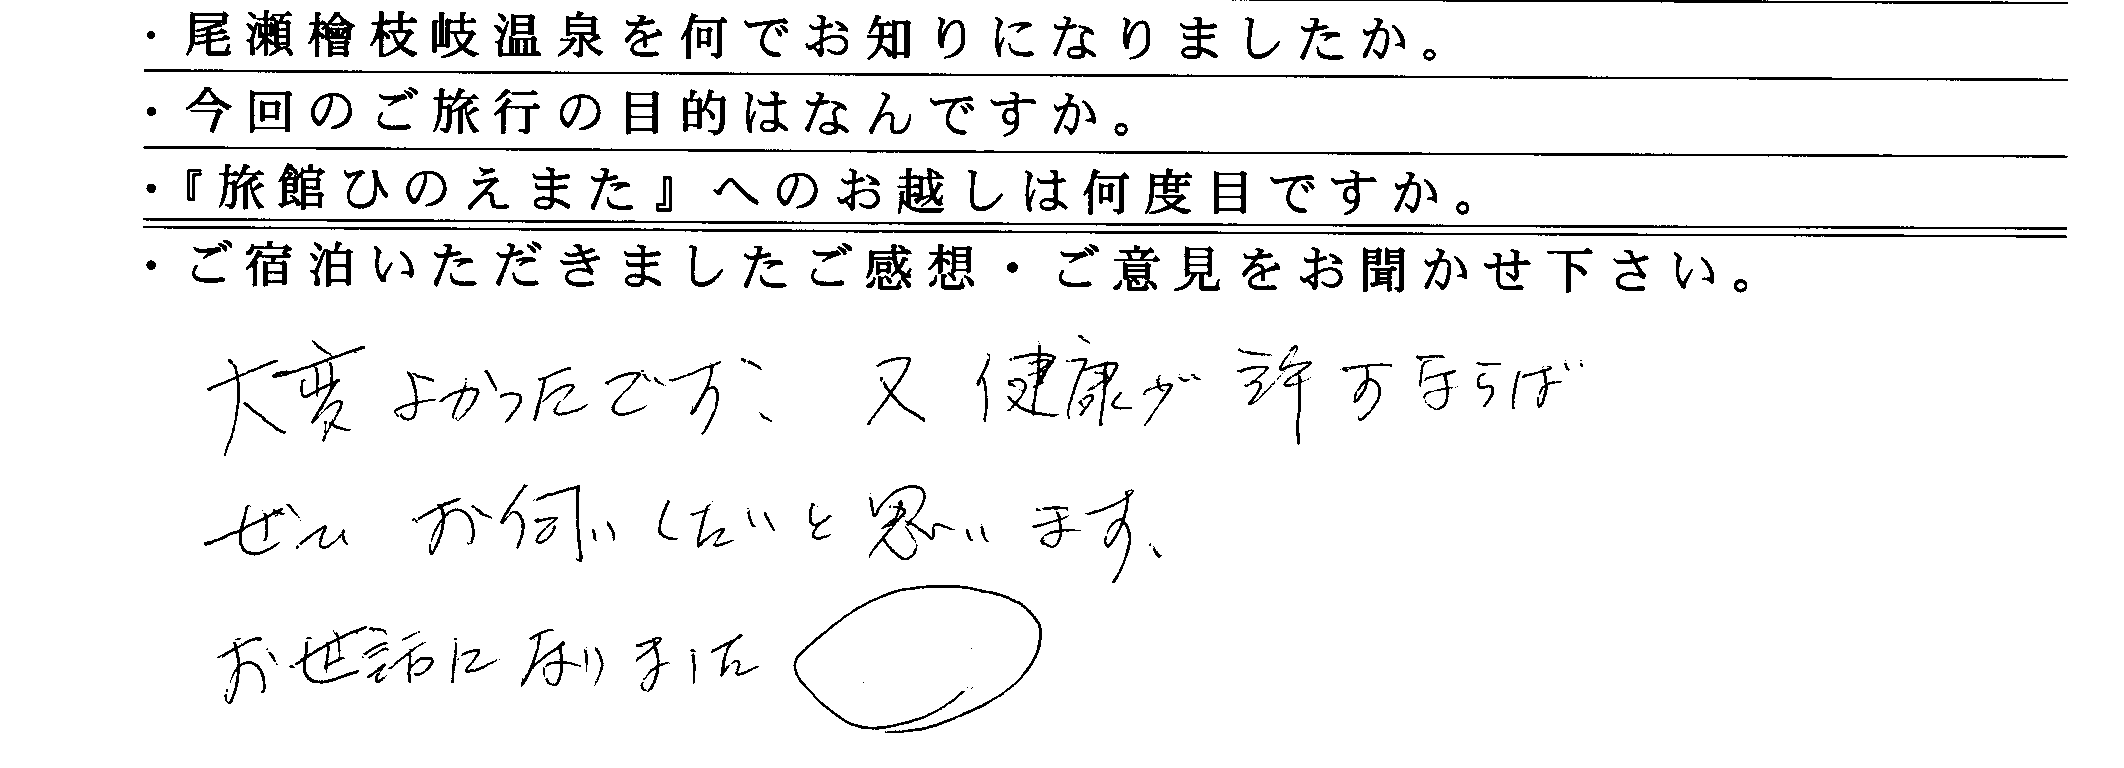 ・尾瀬檜枝岐温泉を何でお知りになりましたか。
・今回のご旅行の目的はなんですか。
・『旅館ひのえまた』へのお越しは何度目ですか。
・ご宿泊いただきましたご感想・ご意見をお聞かせ下さい。
大変よかったです、又健康が許すならば
ぜひ お伺いしたいと思います、
お世話になりました